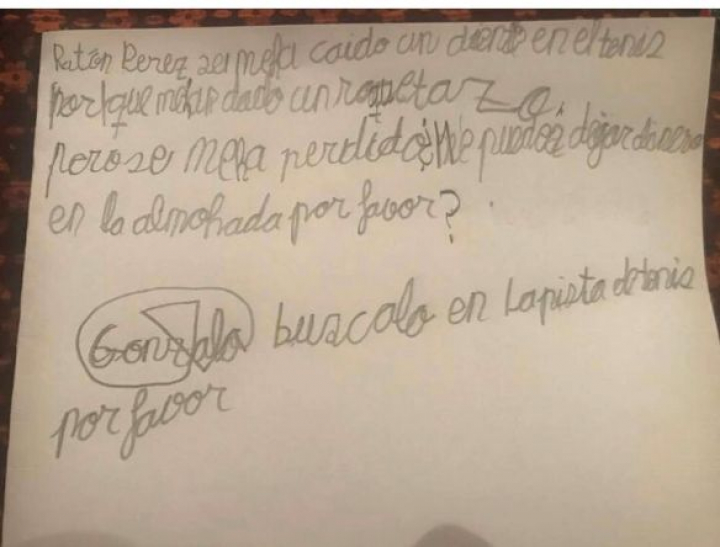 Ratón Perez se mefa caido un diente en el tenis
porque mehan dado un raquetazo.
pero se mefa perdido ¿Me puedes dejar dinero
en la almohada por favor?
Gonzalo buscalo en la pista de tenis
por favor